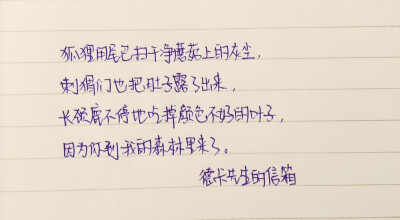 狐狸用尾巴扫干净蘑菇上的灰尘,
刺猬们也把肚子露了出来,
长颈鹿不停地吃掉颜色不好的叶子,
因为你到我的森林里来了。
德卡先生的信箱